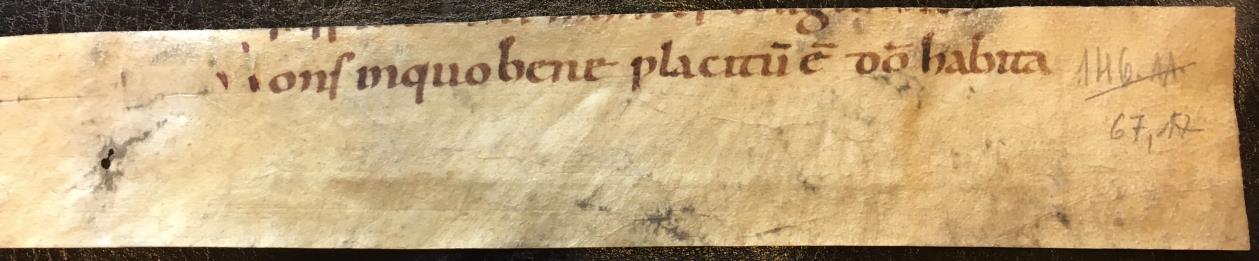 Mons inquo bene placitū ē dō habita
146.11
67,17